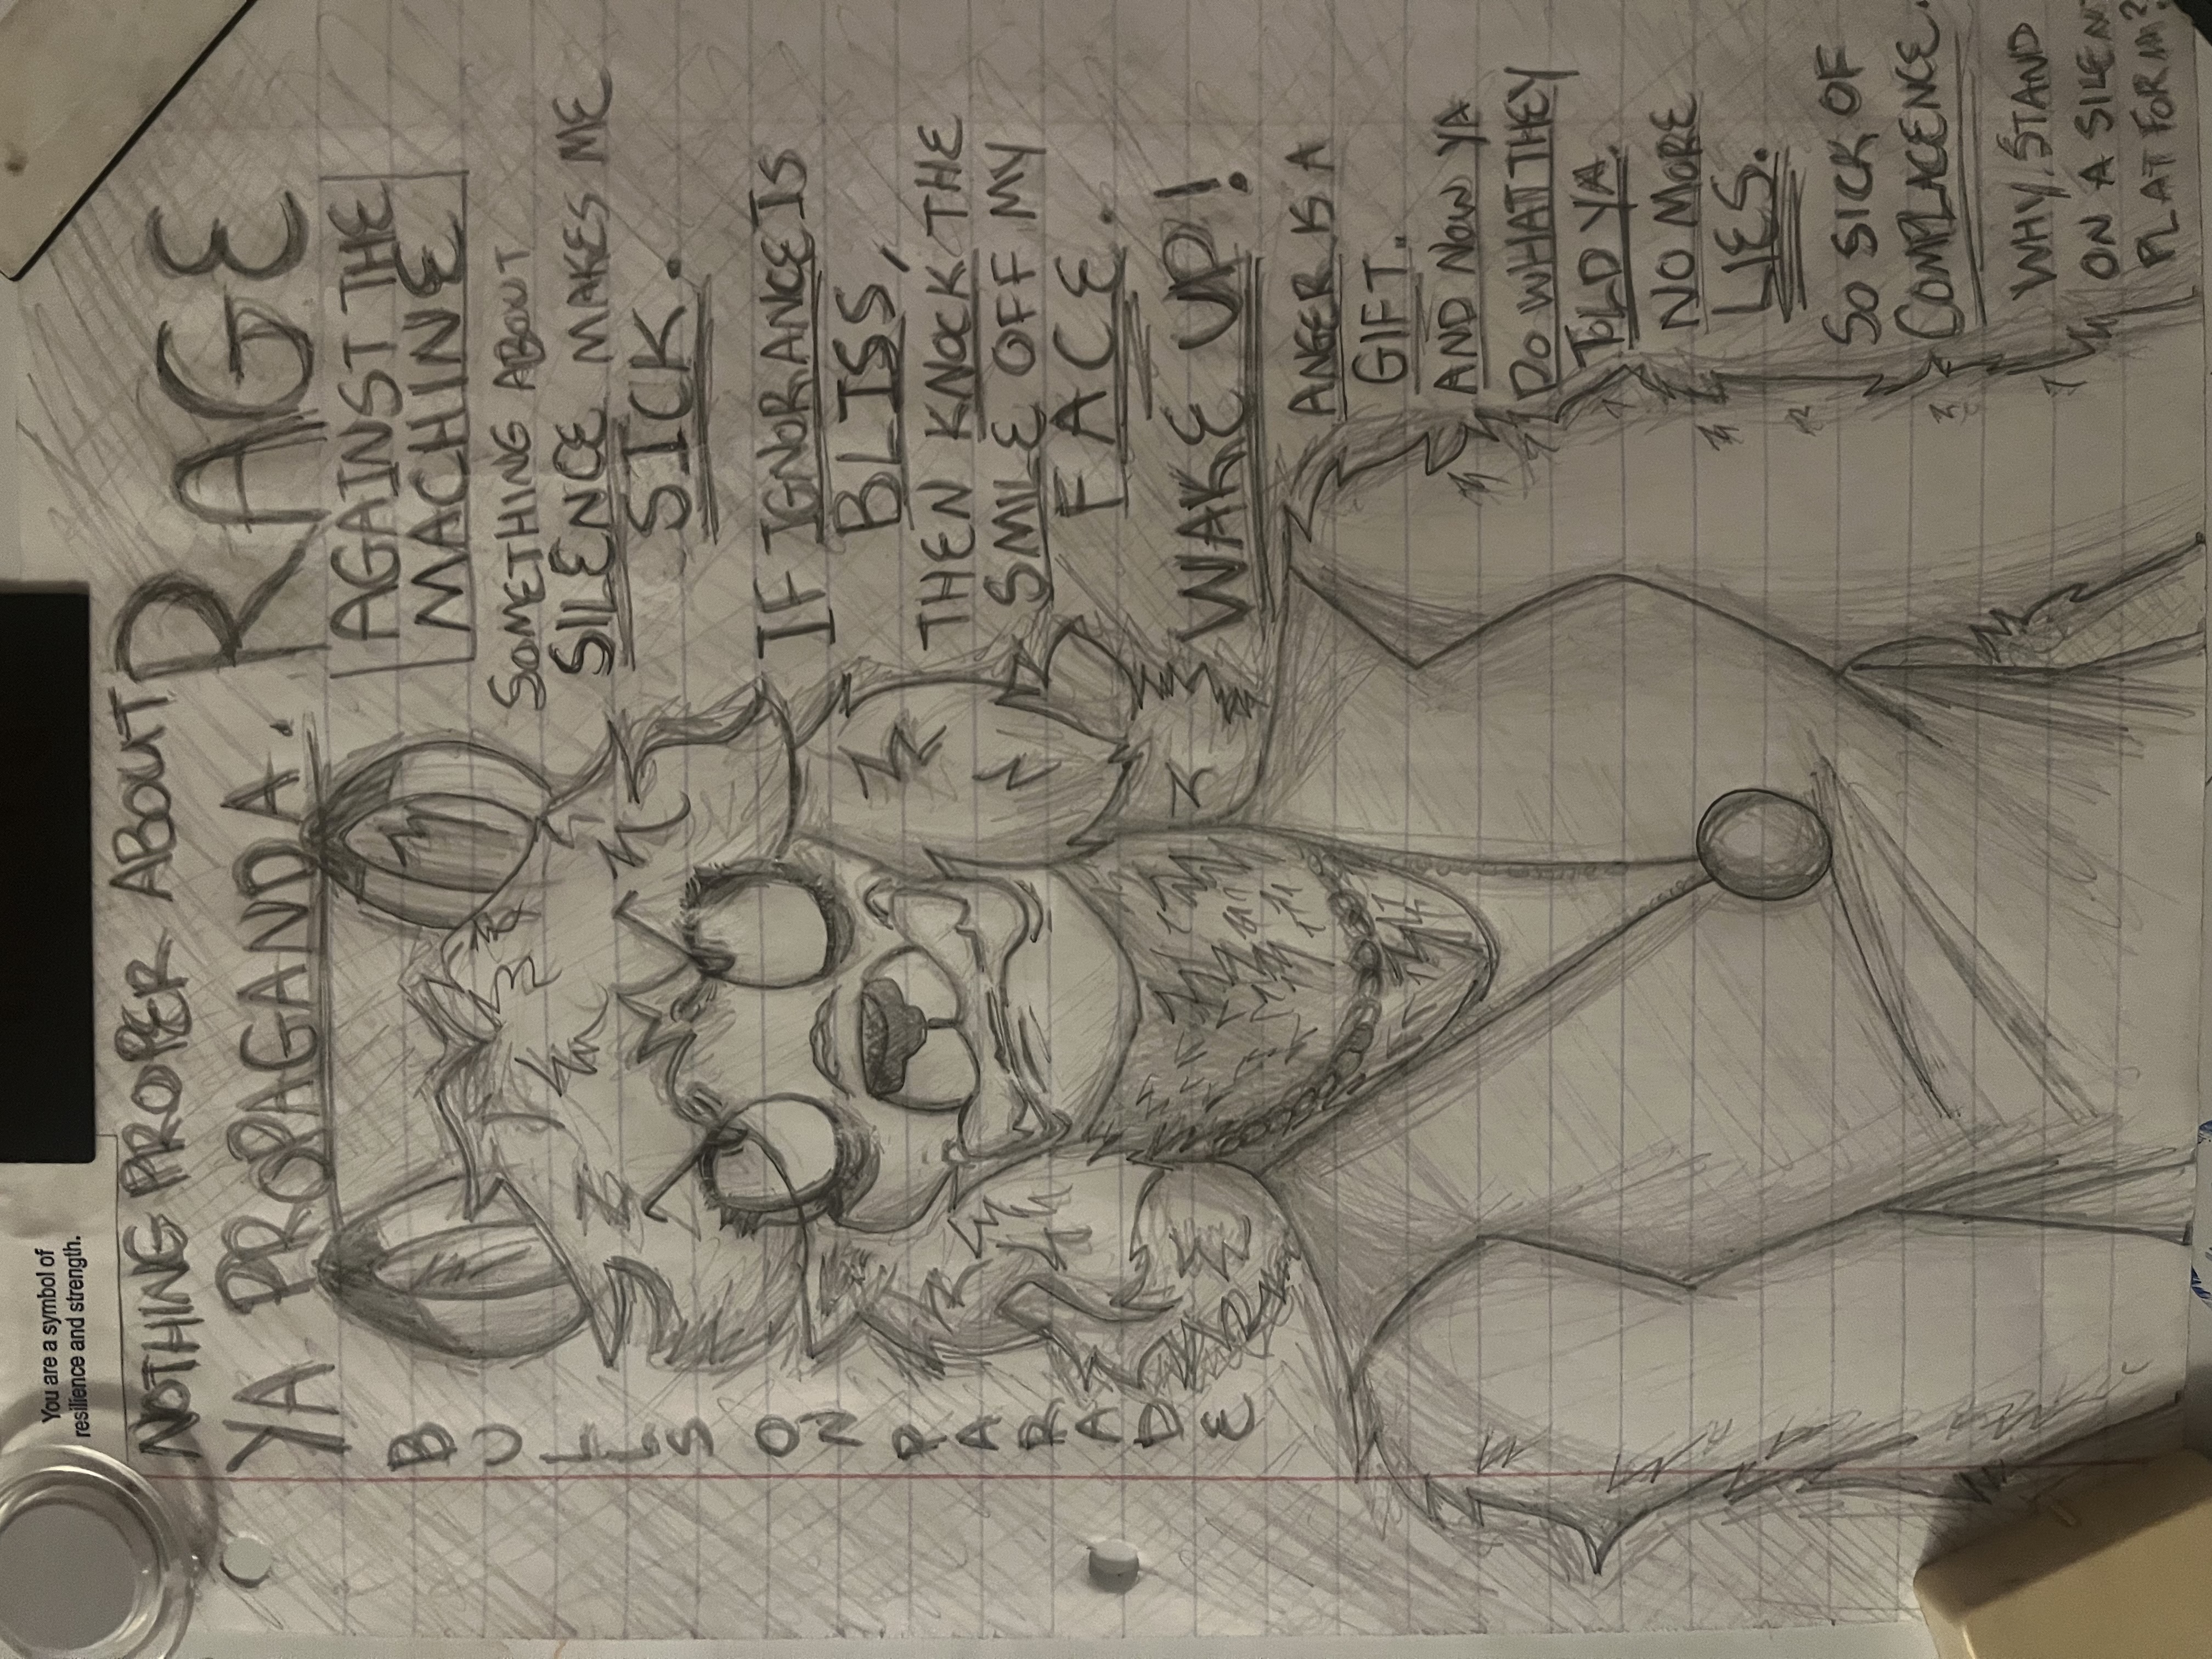 You are a symbol of
resilience and strength.
NOTHING PROPER ABOUT
YA PROPAGANDA.
RAGE
AGAINST THE
MACHINE
SOMETHING ABOUT
SILENCE MAKES ME
SICK.
IF IGNORANCE IS
BLISS,
THEN KNOCK THE
SMILE OFF MY
FACE.
WAKE UP!
ANGER IS A
GIFT..
AND NOW YA
DO WHAT THEY
TOLD YA.
NO MORE
LIES.
SO SICK OF
COMPLACENCE.
WHY STAND
ON A SILENT
PLATFORM?
BULLS ON PARADE